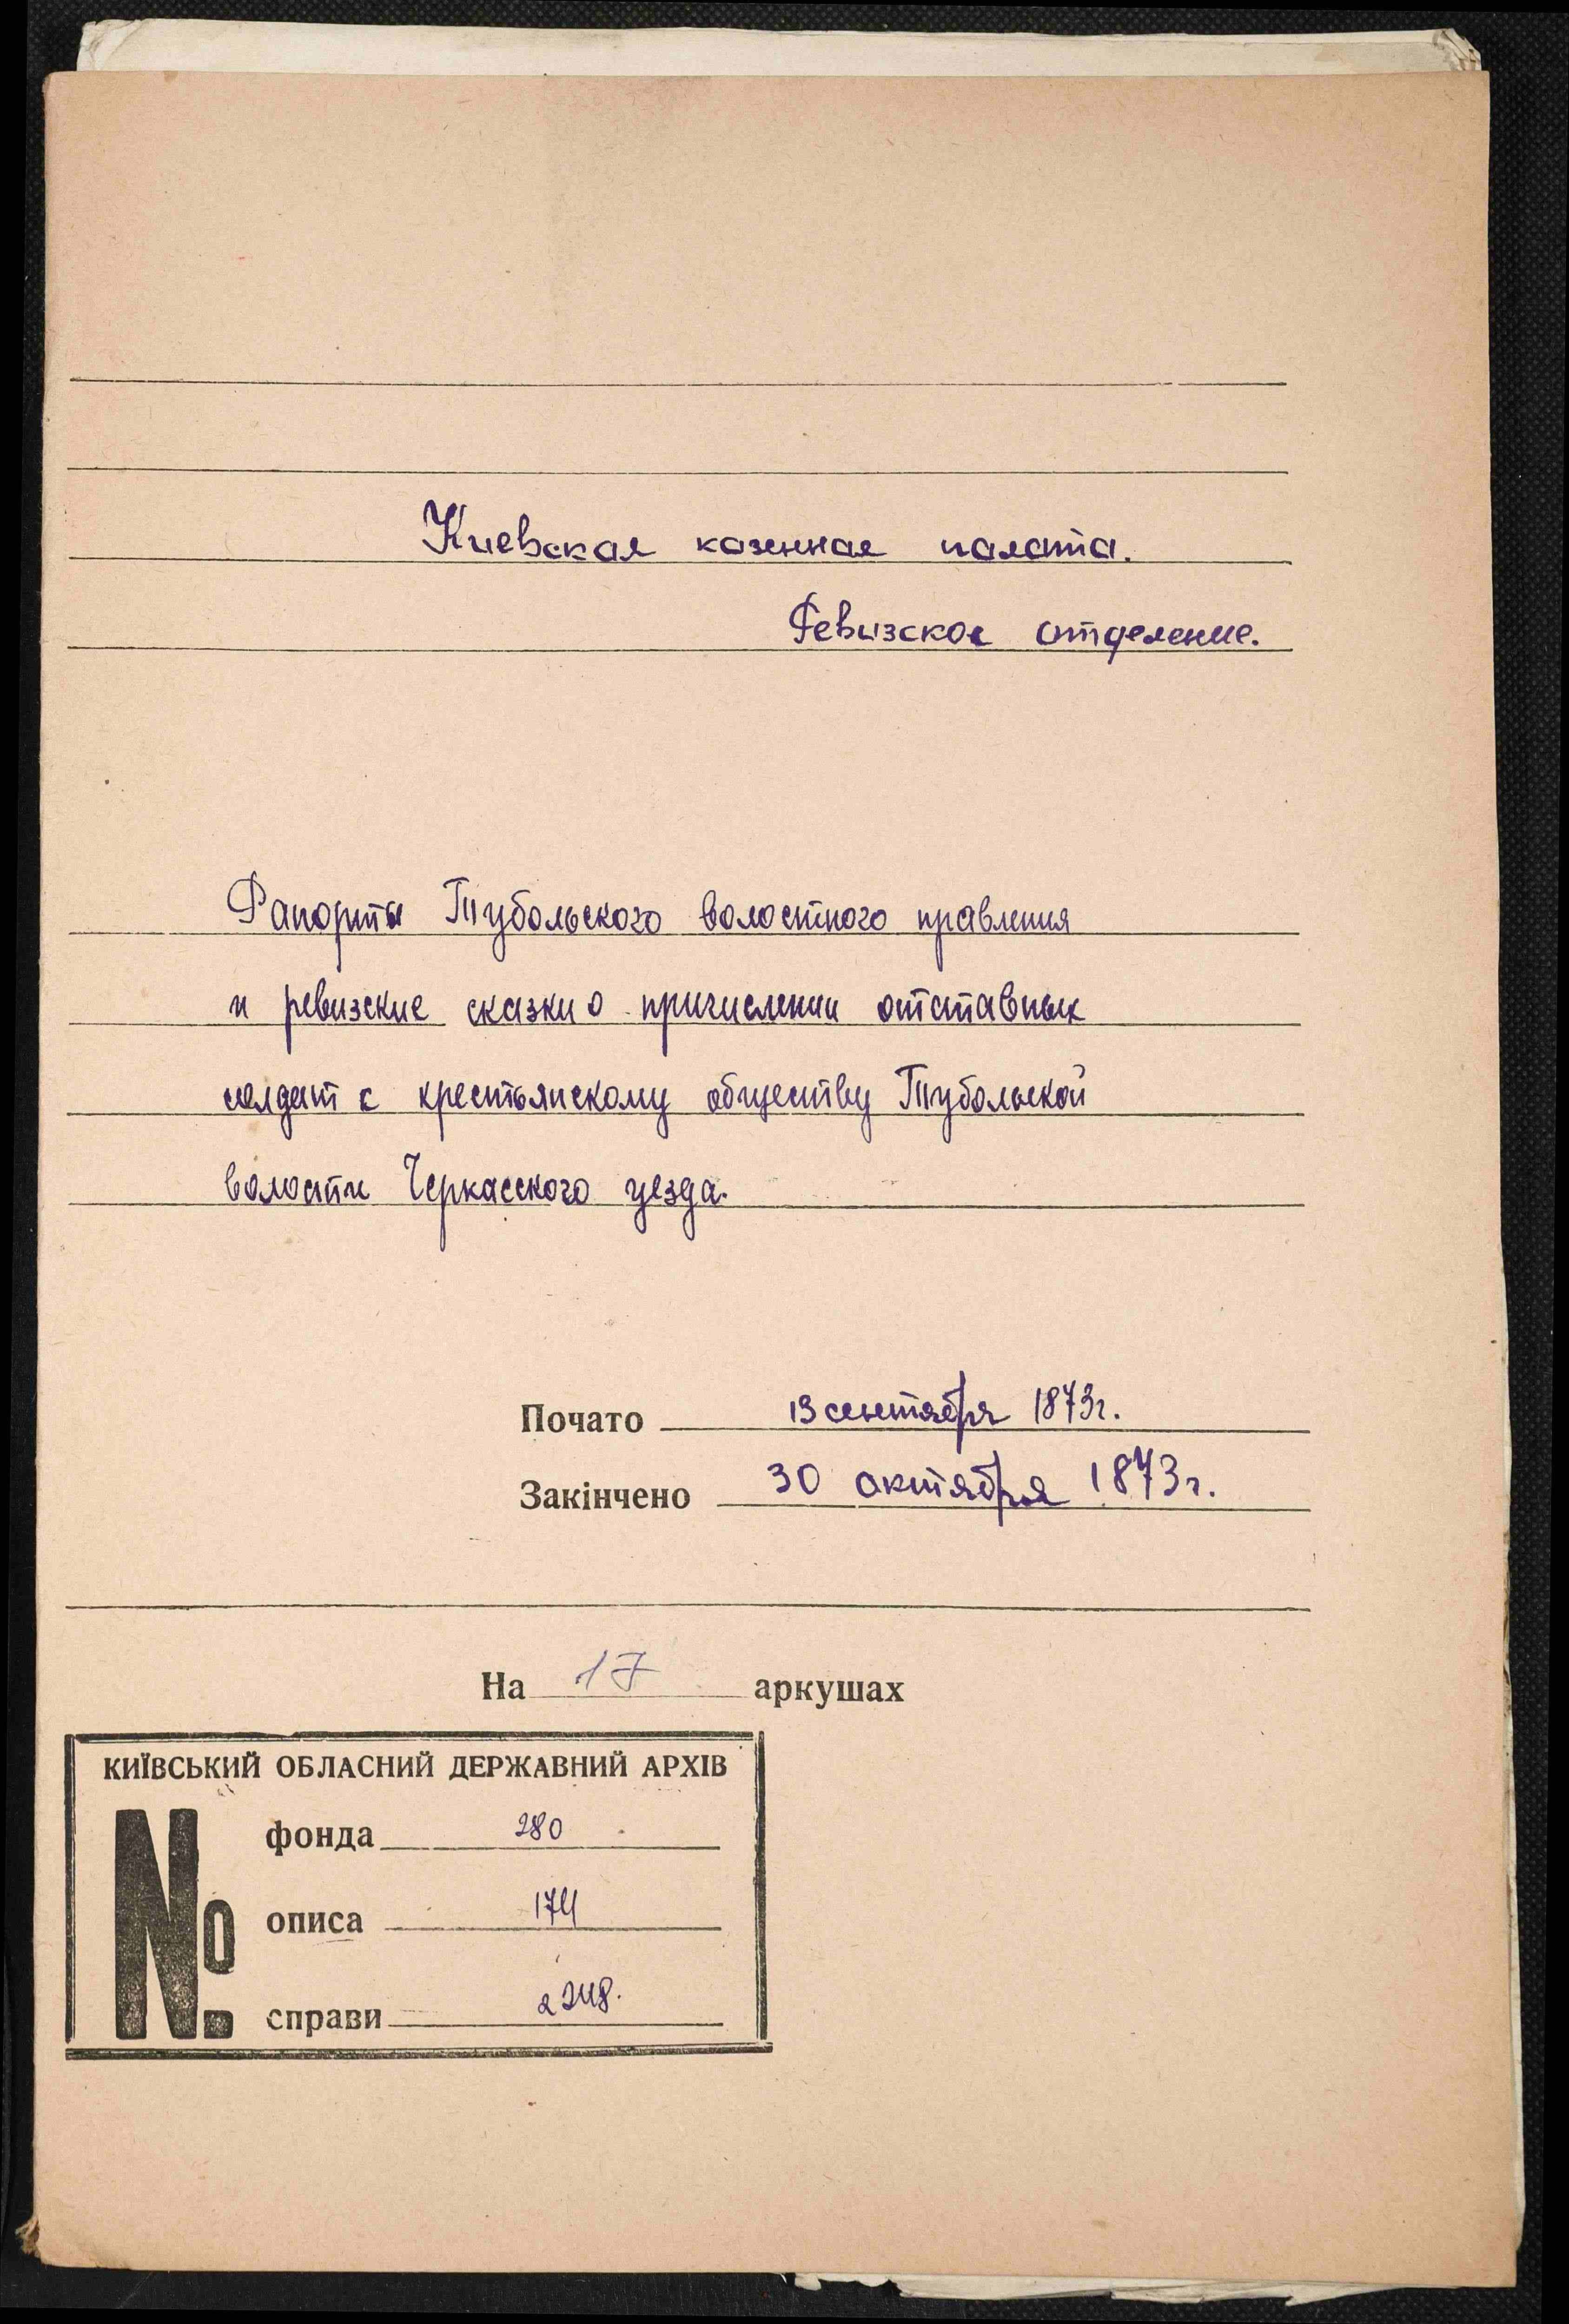 Киевская казенная палата.
Ревизское отделение.
Рапорты Тубольского волостного правления
и ревизские сказки о причислении отставных
солдат к крестьянскому обществу Тубольской
волости Черкасского уезда.
Почато 13 сентября 1873г.
Закінчено 30 октября 1873г.
На 17 аркушах
КИЇВСЬКИЙ ОБЛАСНИЙ ДЕРЖАВНИЙ АРХІВ
№
фонда 280
описа 174
справи 2248.